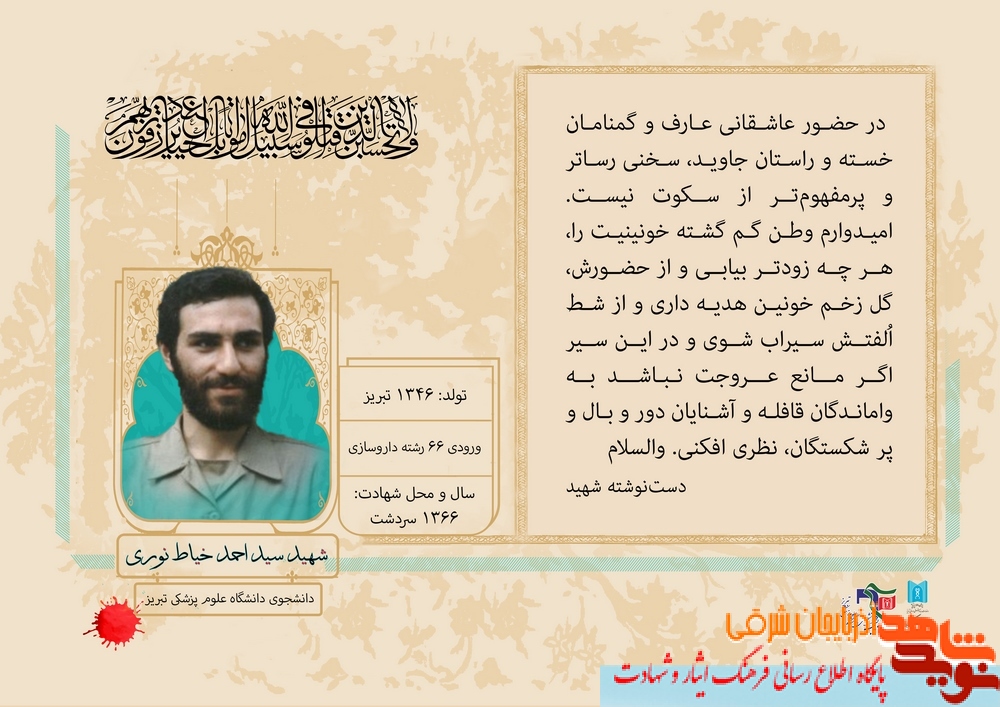 ولا تحسبن الذين قتلوا في سبيل الله امواتا بل احياء عند ربهم يرزقون
در حضور عاشقانی عارف و گمنامان
خسته و راستان جاوید، سخنی رساتر
و پرمفهوم‌تر از سکوت نیست.
امیدوارم وطن گم گشته خونینیت را،
هر چه زودتر بیابی و از حضورش،
گل زخم خونین هدیه داری و از شط
اُلفتش سیراب شوی و در این سیر
اگر مانع عروجت نباشد به
واماندگان قافله و آشنایان دور و بال و
پر شکستگان، نظری افکنی. والسلام
دست‌نوشته شهید
تولد: ۱۳۴۶ تبریز
ورودی ۶۶ رشته داروسازی
سال و محل شهادت:
۱۳۶۶ سردشت
شهید سید احمد خیاط نوری
دانشجوی دانشگاه علوم پزشکی تبریز
نوید شاهد آذربایجان شرقی
پایگاه اطلاع رسانی فرهنگ ایثار و شهادت